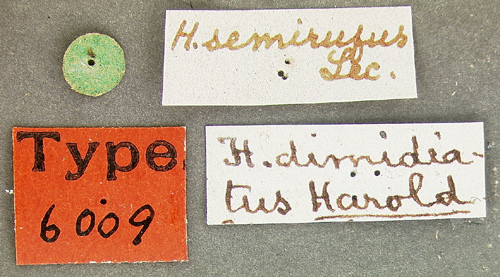 H. semirufus
Lec.
Type
6009
H. dimidia-
tus Harold